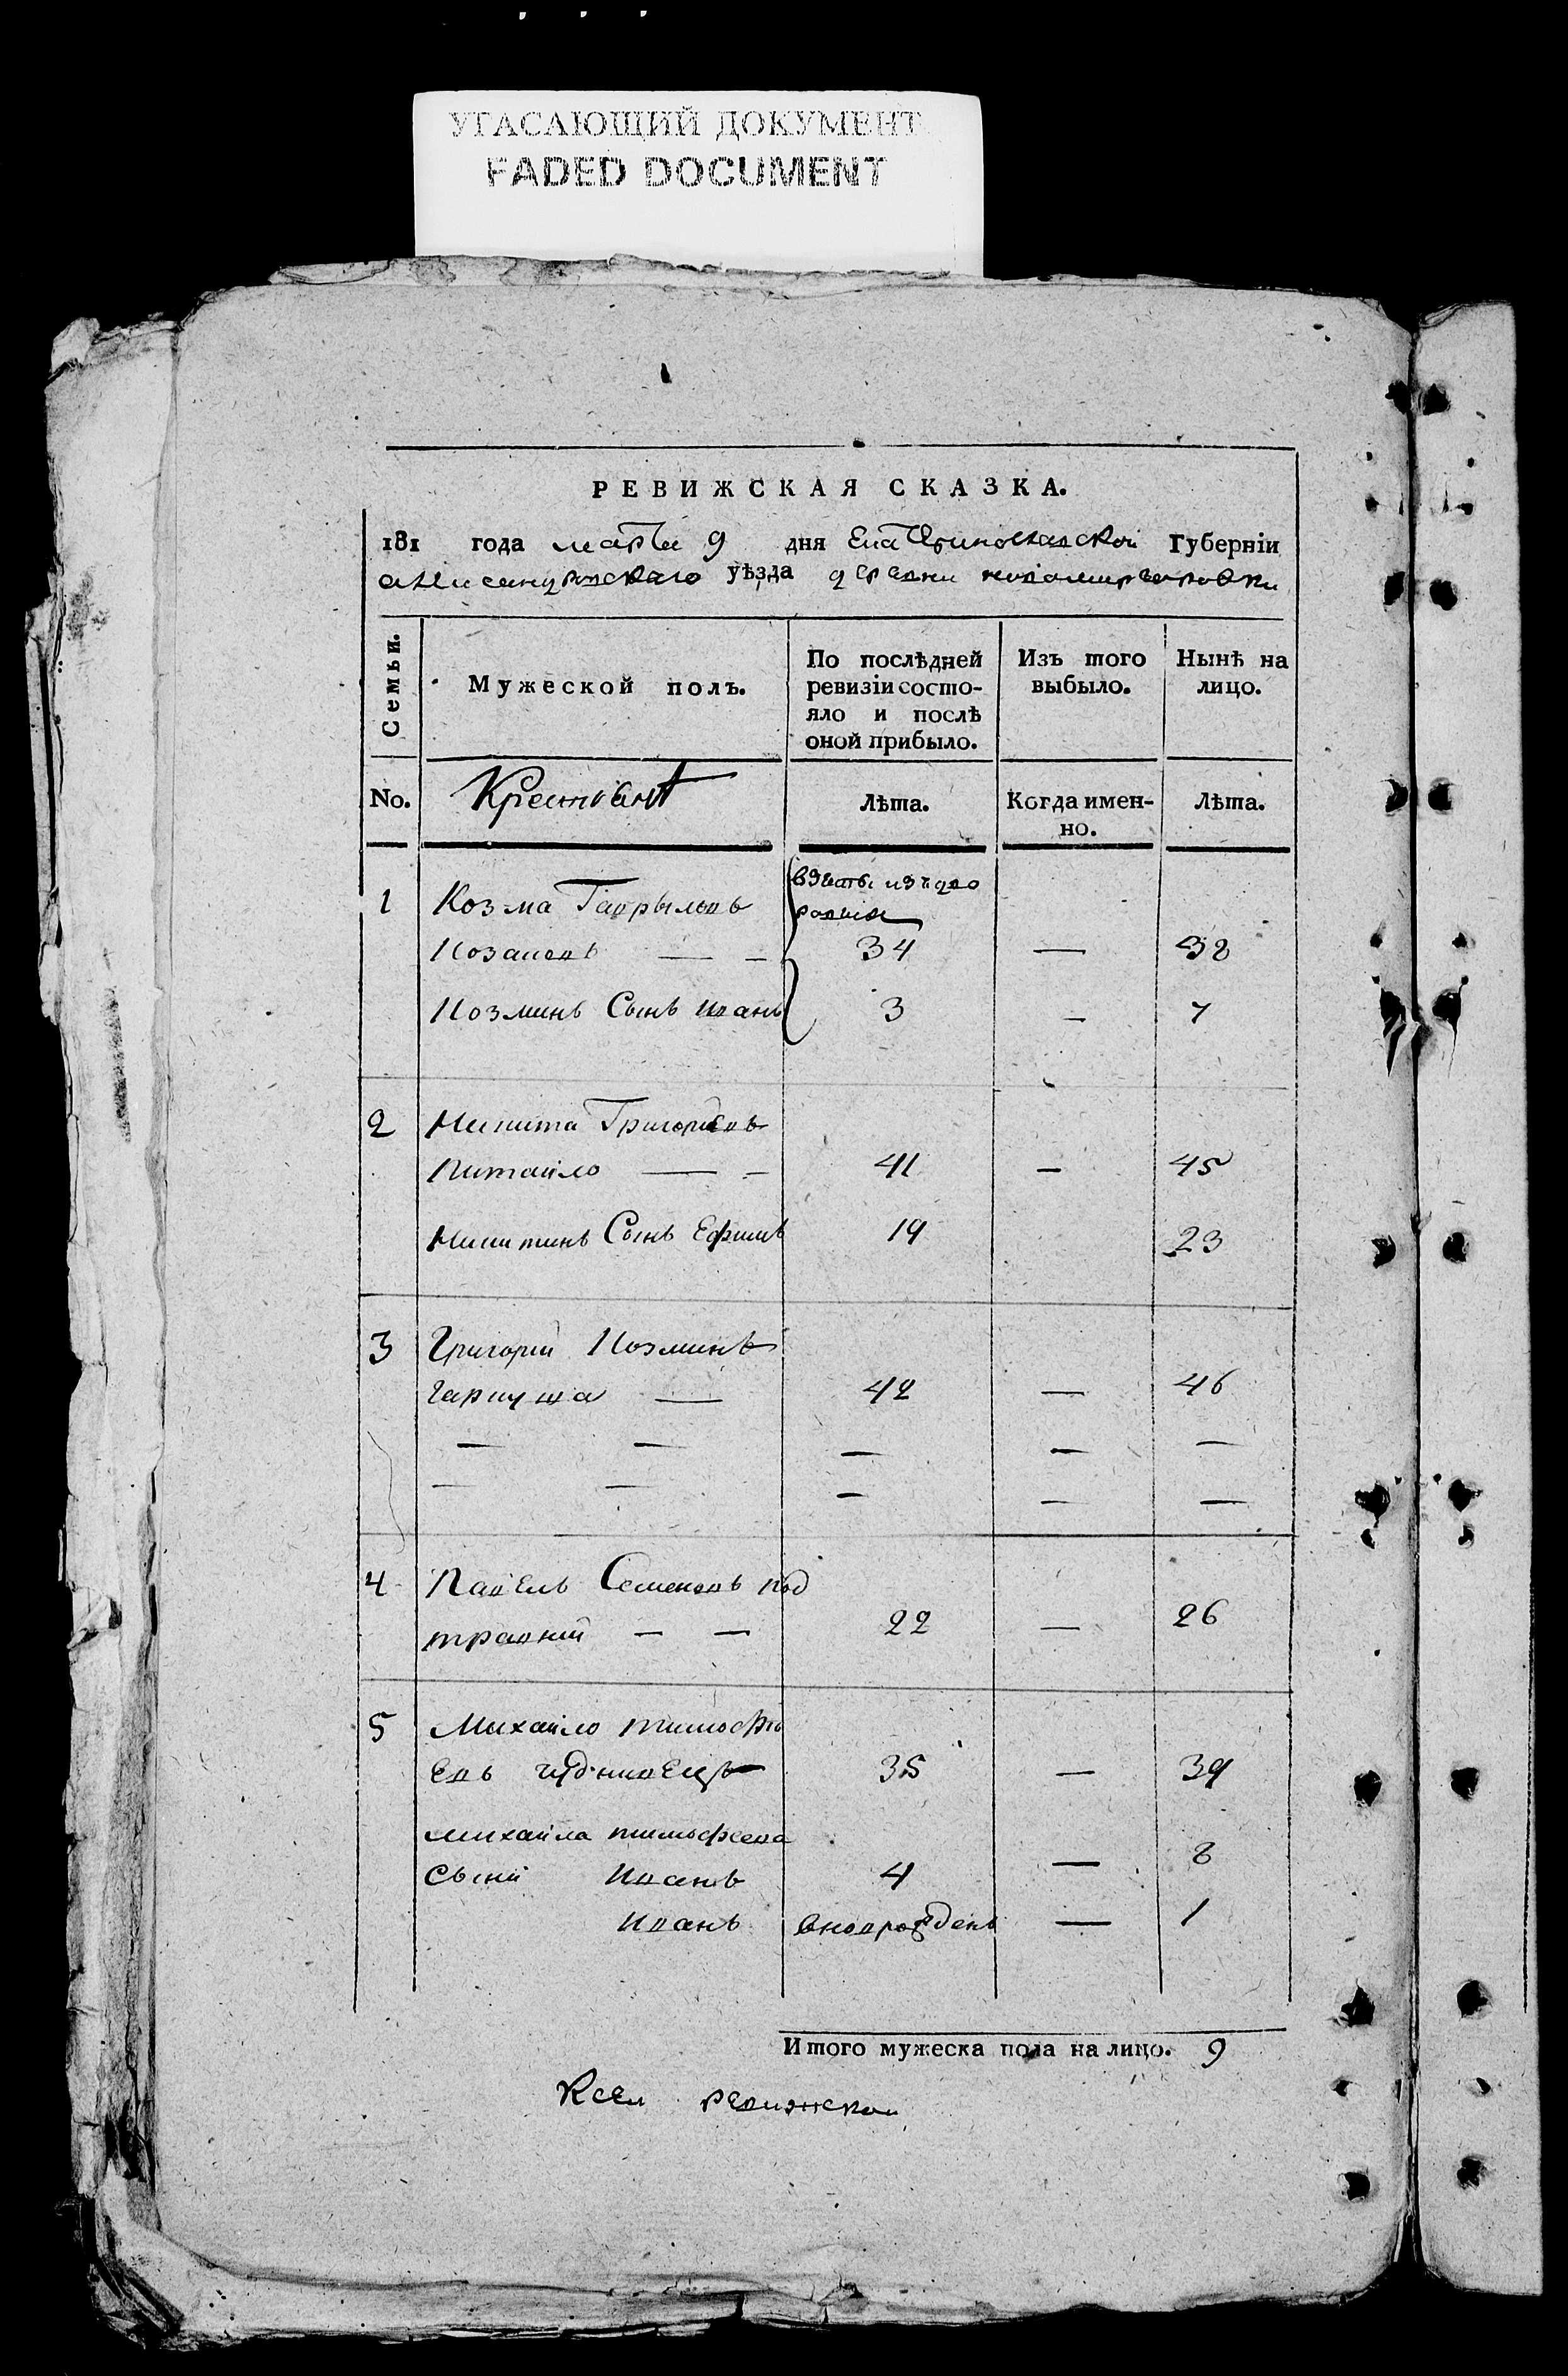 УГАСАЮЩИЙ ДОКУМЕНТ
FADED DOCUMENT
РЕВИЖСКАЯ СКАЗКА.
181 года марта 9 дня Екатеринославской Губерніи
александровскаго уѣзда деревни
Семьи.
Мужеской полъ.
По послѣдней
ревизіи состо-
яло и послѣ
оной прибыло.
Изъ того
выбыло.
Нынѣ на
лицо.
No.
Лѣта.
Когда имен-
но.
Лѣта.
взяты изъ дво
1 Козма Гаврыловъ
Козаченъ — — 34 — 38
Козминъ Сынъ иванъ 3 — 7
2 Никита Григориевъ
Китайло — — 41 — 45
Никитинъ Сынъ Ефимъ 19 23
3 Григорий Козминъ
— 42 — 46
— — — — —
— — — — —
4 Павелъ Семеновъ под
— — 22 — 26
5 Михайло тимофѣ
евъ 35 — 39
михайла тимофеева
сыни Иванъ 4 — 8
Иванъ вноврожденъ — 1
Итого мужеска пола на лицо. 9
Ксей ревижской